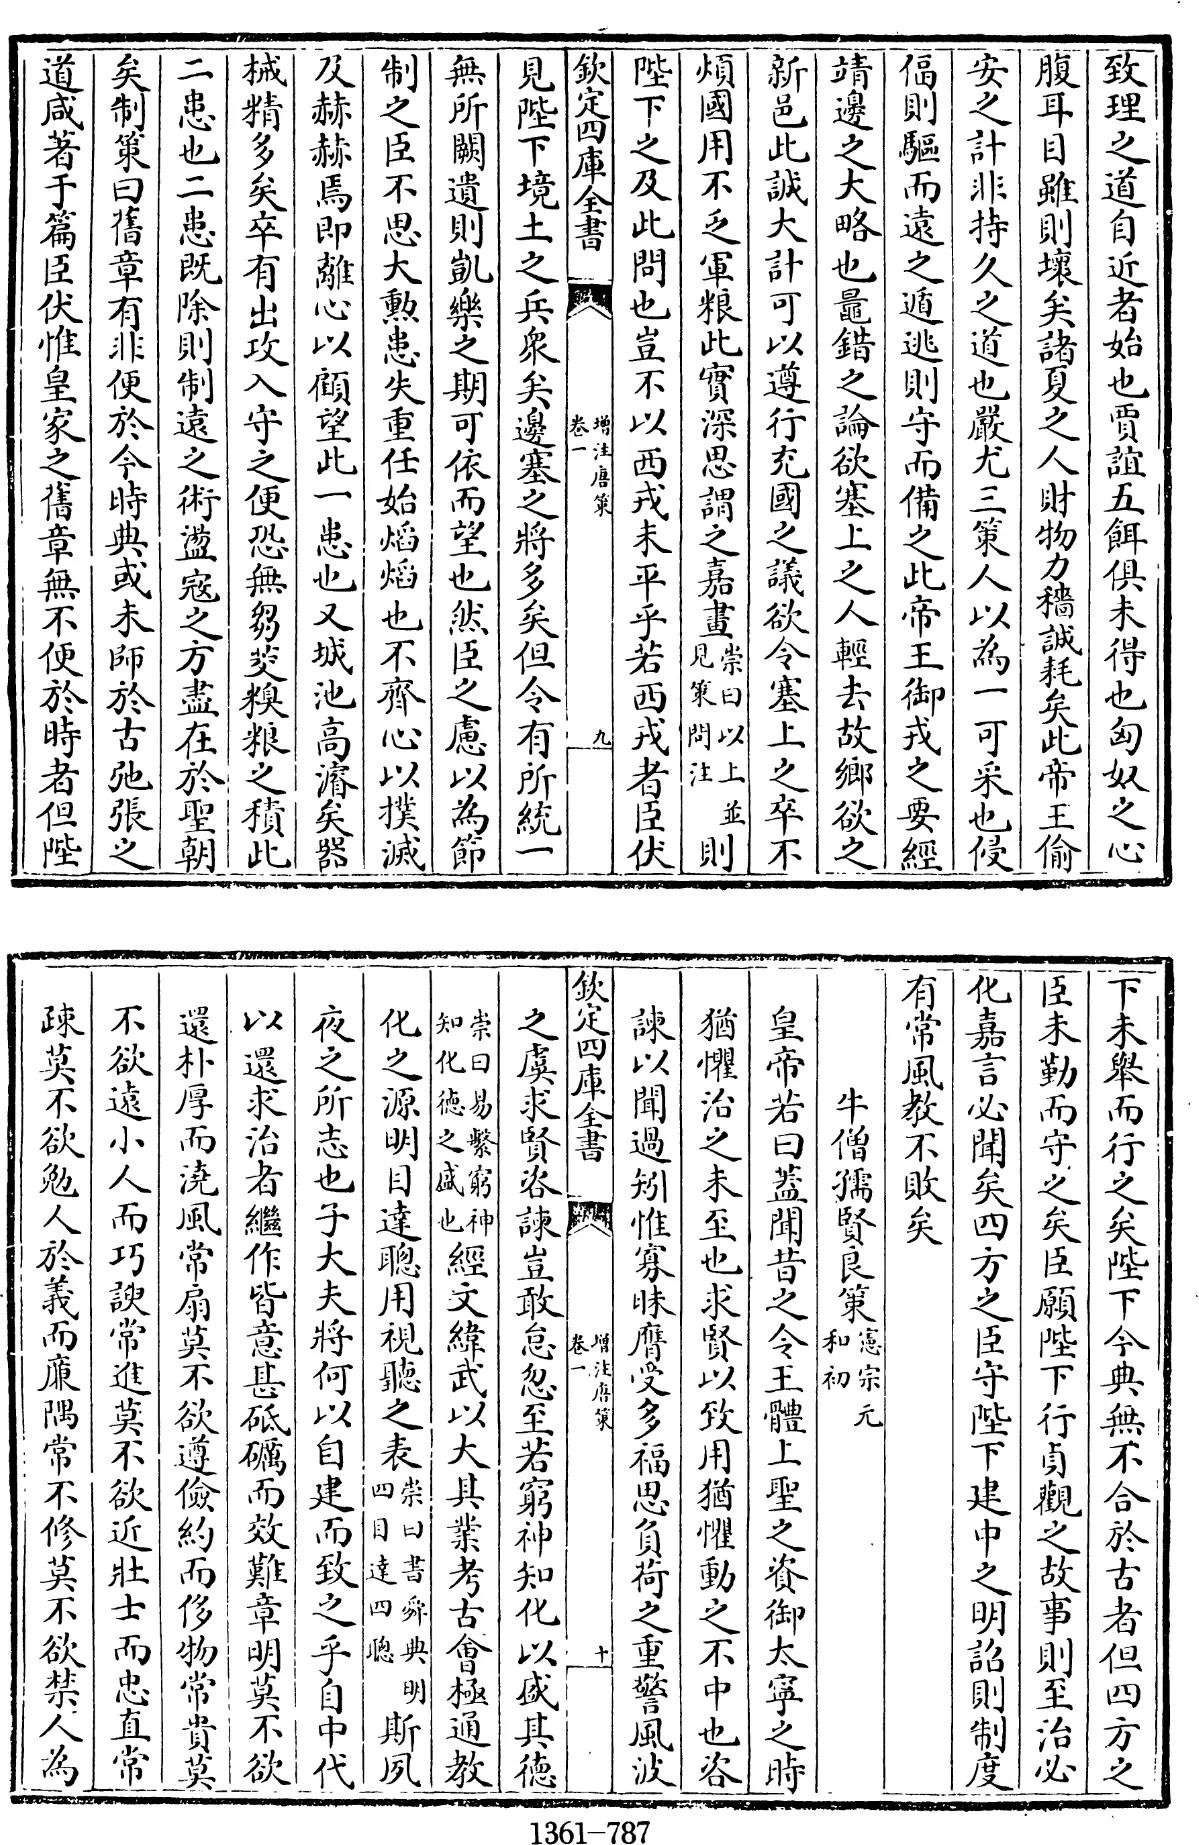 致理之道自近者始也賈誼五餌俱未得也匈奴之心
腹耳目雖則壞矣諸夏之人財物力穡誠耗矣此帝王偷
安之計非持久之道也嚴尤三策人以為一可采也侵
偪則驅而遠之遁逃則守而備之此帝王御戎之要經
靖邊之大略也鼂錯之論欲塞上之人輕去故鄉欲之
新邑此誠大計可以遵行充國之議欲令塞上之卒不
煩國用不乏軍粮此實深思謂之嘉畫崇曰以上並見策問注則
陛下之及此問也豈不以西戎未平乎若西戎者臣伏
欽定四庫全書 增注唐策卷一 九
見陛下境土之兵衆矣邊塞之將多矣但令有所統一
無所闕遺則凱樂之期可依而望也然臣之慮以為節
制之臣不思大勲患失重任始熖熖也不齊心以撲滅
及赫赫焉即離心以顧望此一患也又城池高濬矣器
械精多矣卒有出攻入守之便恐無芻茭糗粮之積此
二患也二患既除則制遠之術盪寇之方盡在於聖朝
矣制策曰舊章有非便於今時典或未師於古弛張之
道咸著于篇臣伏惟皇家之舊章無不便於時者但陛
下未舉而行之矣陛下今典無不合於古者但四方之
臣未勤而守之矣臣願陛下行貞觀之故事則至治必
化嘉言必聞矣四方之臣守陛下建中之明詔則制度
有常風教不敗矣
牛僧孺賢良策憲宗元和初
皇帝若曰蓋聞昔之令王體上聖之資御太寧之時
猶懼治之未至也求賢以致用猶懼動之不中也咨
諫以聞過矧惟寡昧膺受多福思負荷之重警風波
欽定四庫全書 增注唐策卷一 十
之虞求賢咨諫豈敢怠忽至若窮神知化以盛其德
崇曰易繫窮神知化德之盛也經文緯武以大其業考古會極通教
化之源明目達聰用視聽之表崇曰書舜典明四目達四聰斯夙
夜之所志也子大夫將何以自建而致之乎自中代
以還求治者繼作皆意甚砥礪而效難章明莫不欲
還朴厚而澆風常扇莫不欲遵儉約而侈物常貴莫
不欲遠小人而巧諛常進莫不欲近壯士而忠直常
疎莫不欲勉人於義而廉隅常不修莫不欲禁人為
1361-787